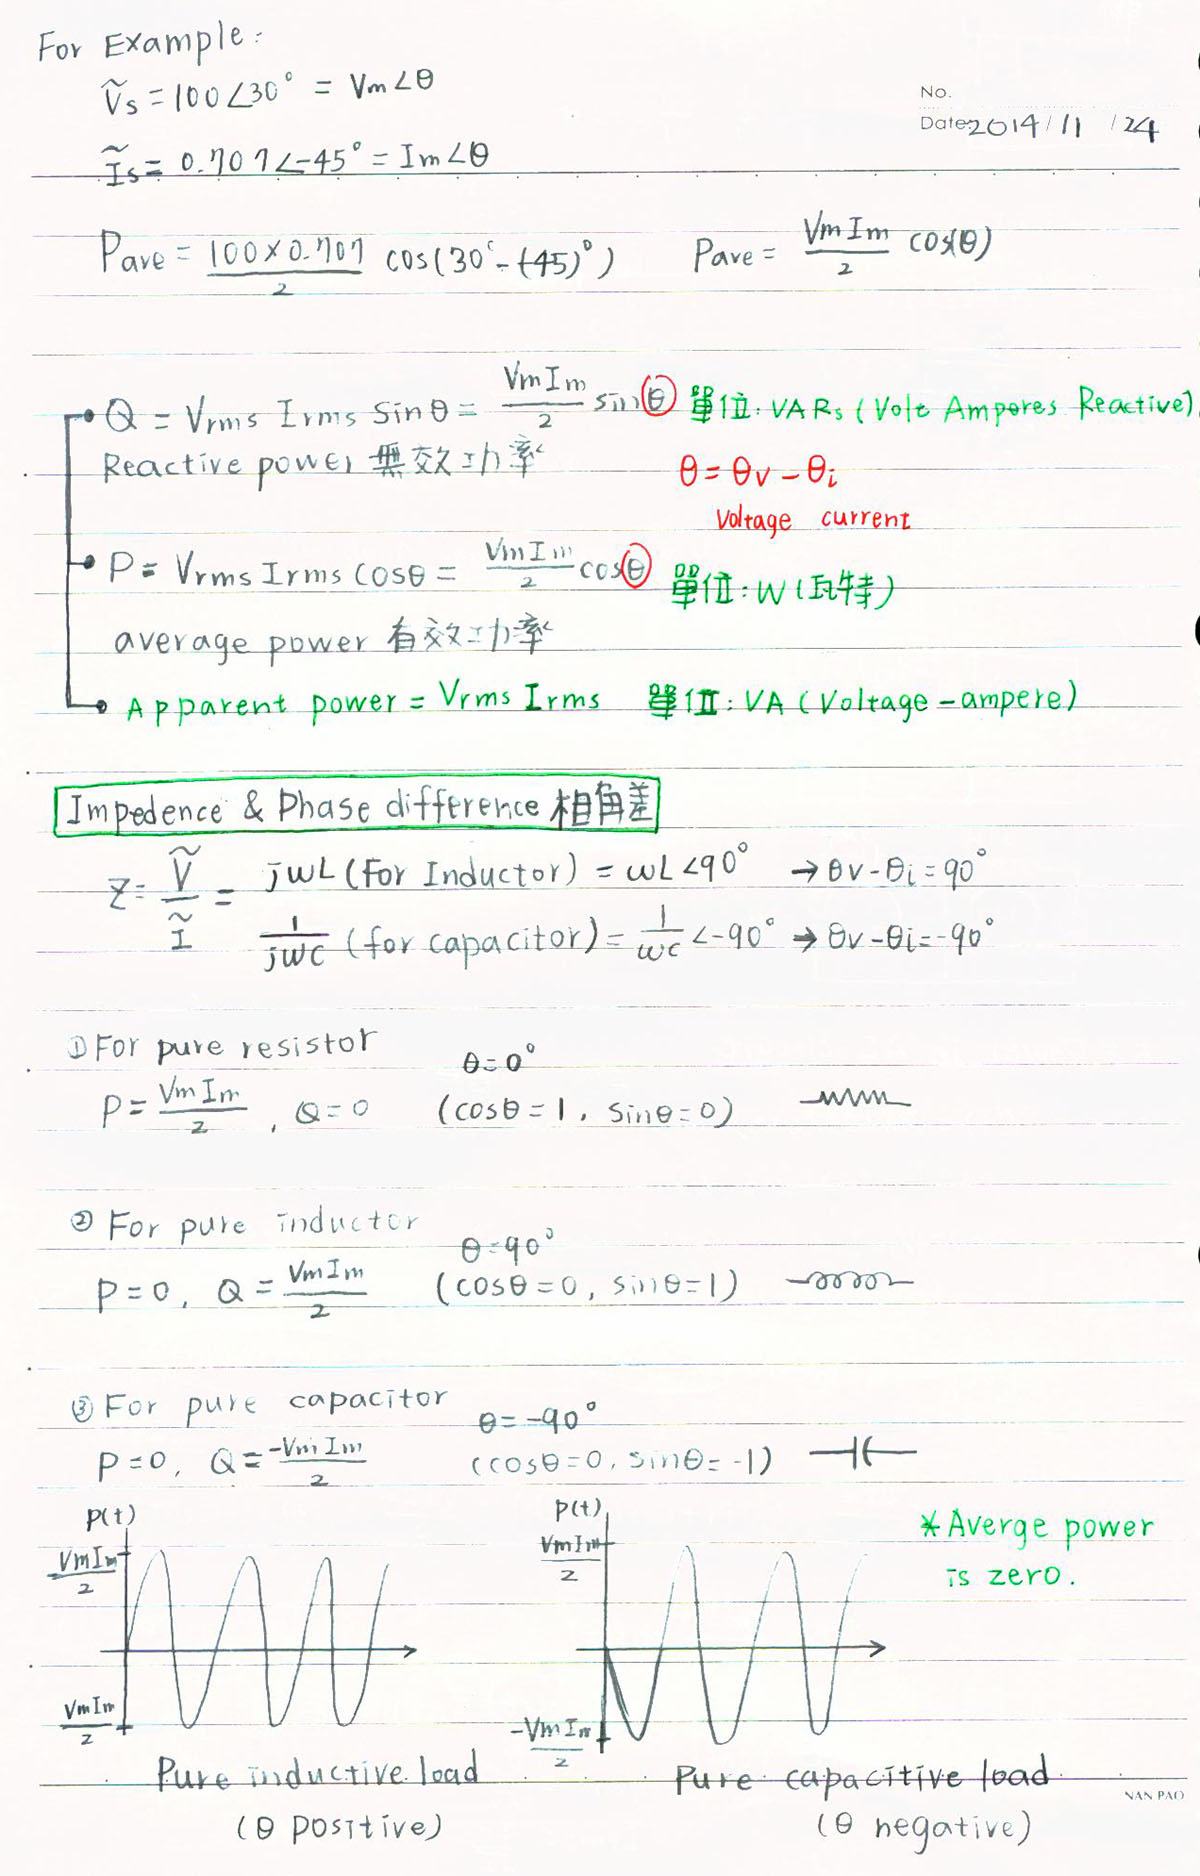 For Example:
Ṽs = 100∠30° = Vm∠θ
No.
Date: 2014/11/24
Ĩs = 0.707∠-45° = Im∠θ
Pave = 100×0.707/2 cos(30°-(-45)°) Pave = VmIm/2 cos(θ)
Q = Vrms Irms Sinθ = VmIm/2 sinθ 單位: VARs (Volt Ampores Reactive)
Reactive power 無效功率 θ = θv - θi
Voltage current
P = Vrms Irms cosθ = VmIm/2 cosθ 單位: W (瓦特)
average power 有效功率
Apparent power = Vrms Irms 單位: VA (Voltage-ampere)
Impedence & Phase difference 相角差
Z = Ṽ/Ĩ = jwL (For Inductor) = wL∠90° → θv-θi = 90°
1/jwc (for capacitor) = 1/wc ∠-90° → θv-θi = -90°
① For pure resistor θ=0°
P = VmIm/2, Q=0 (cosθ=1, sinθ=0)
② For pure inductor θ=90°
P=0, Q = VmIm/2 (cosθ=0, sinθ=1)
③ For pure capacitor θ=-90°
P=0, Q = -VmIm/2 (cosθ=0, sinθ=-1)
P(t)
VmIm/2
VmIm/2
Pure inductive load
(θ positive)
P(t)
VmIm/2
-VmIm/2
Pure capacitive load
(θ negative)
* Averge power
is zero.
NAN PAO